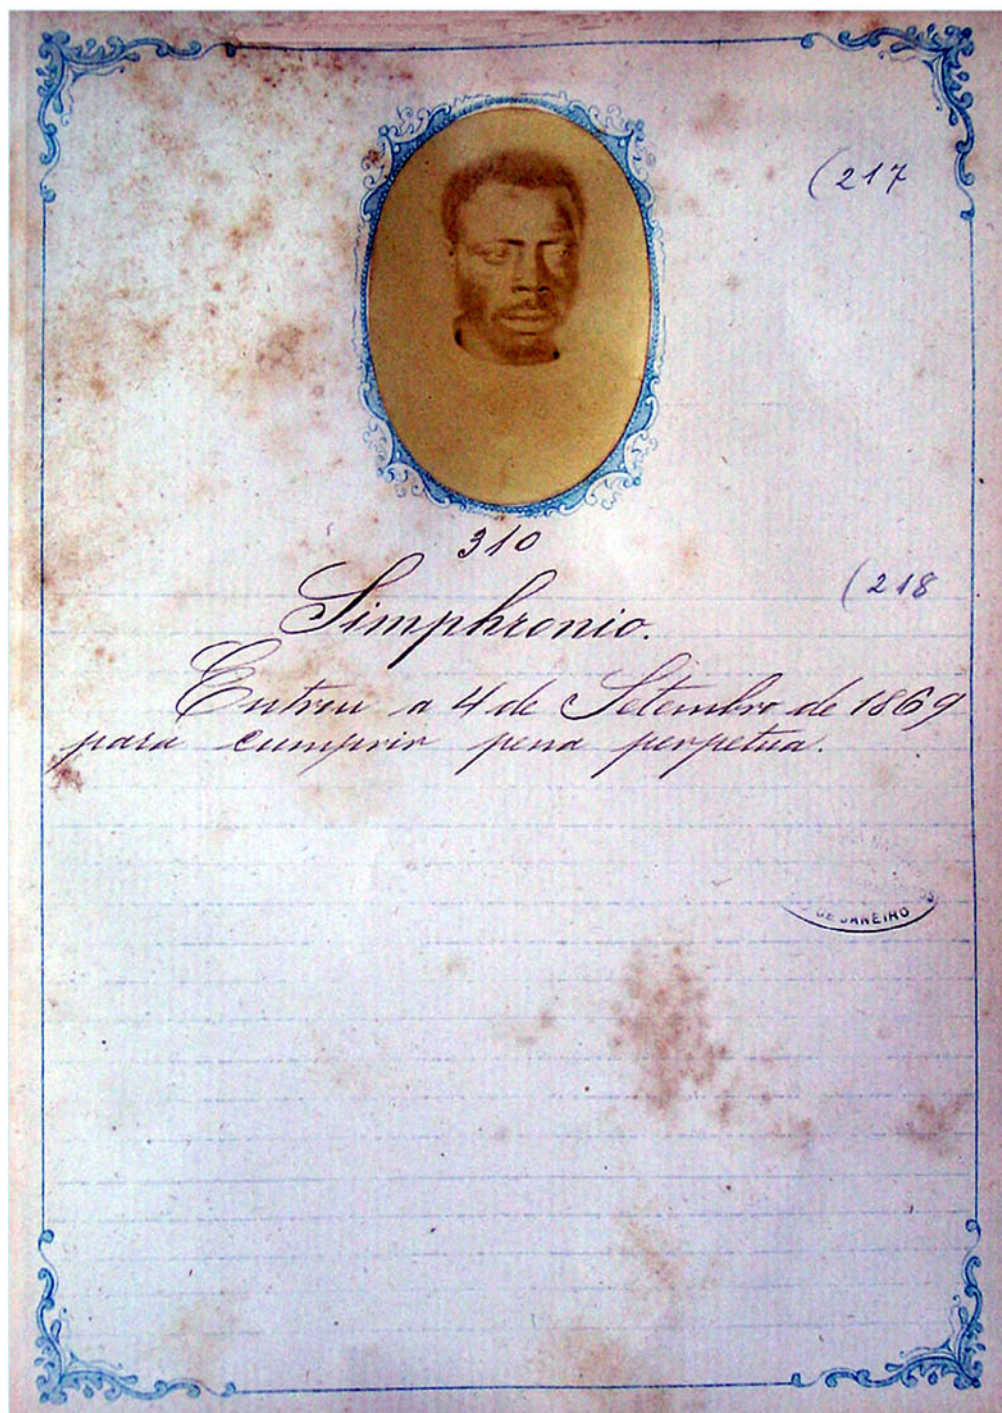 (217
310
(218
Simphronio.
Entrou a 4 de Setembro de 1869
para cumprir pena perpetua.
DE JANEIRO